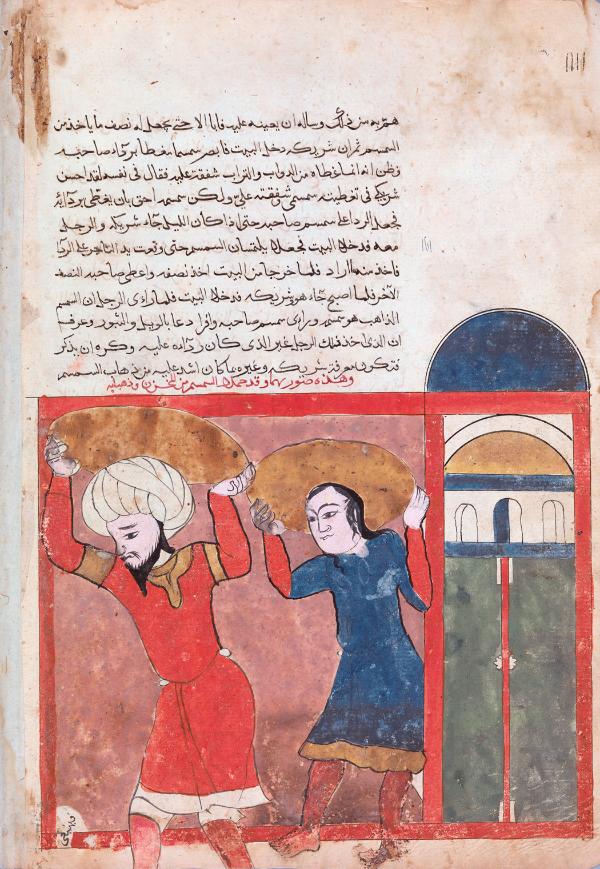 هم به من ذلك وساله ان يعينه عليه فابا الا حتى يجعل له نصف ما ياخذ من
السمسم ثم ان شريكه دخل البيت فابصر سمسما مغطا برداء صاحبه
وظن انه انما غطاه من الدواب والتراب شفقة عليه فقال في نفسه لقد احسن
شريكي في تغطيته سمسمي وشفقته علي ولكن سمسمه احق بان يغطى بردائه
فجعل الردا على سمسم صاحبه حتى اذا كان الليل جاء شريكه والرجل
معه فدخلا البيت فجعلا يلتمسان السمسم حتى وقعت يد التاجر على الردا
فاخذ منه ما اراد فلما خرجا من البيت اخذ نصفه واعطى صاحبه النصف
الاخر فلما اصبح جاء هو وشريكه فدخلا البيت فلما راى الرجل ان السمسم
الذاهب هو سمسمه وراى سمسم صاحبه وافرا دعا بالويل والثبور وعرف
ان الذي اخذ الرجل غير الذي كان رداءه عليه وكره ان يذكر
فتكون معرفة شريكه وغيره ما كان اشد عليه من ذهاب السمسم
وهذه صورتهما وقد حملا السمسم من المخزن وذهبا به